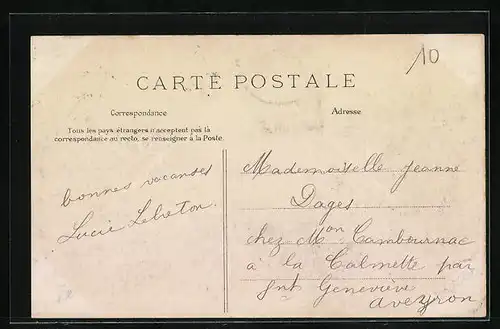 10
CARTE POSTALE
Correspondance
Adresse
Tous les pays étrangers n'acceptent pas la
correspondance au recto, se renseigner à la Poste.
bonnes vacanses
Lucie Lebreton.
Mademoiselle Jeanne
Dages
chez Mon Cambournac
à la Calmette par
Snt Geneviève
Aveyron